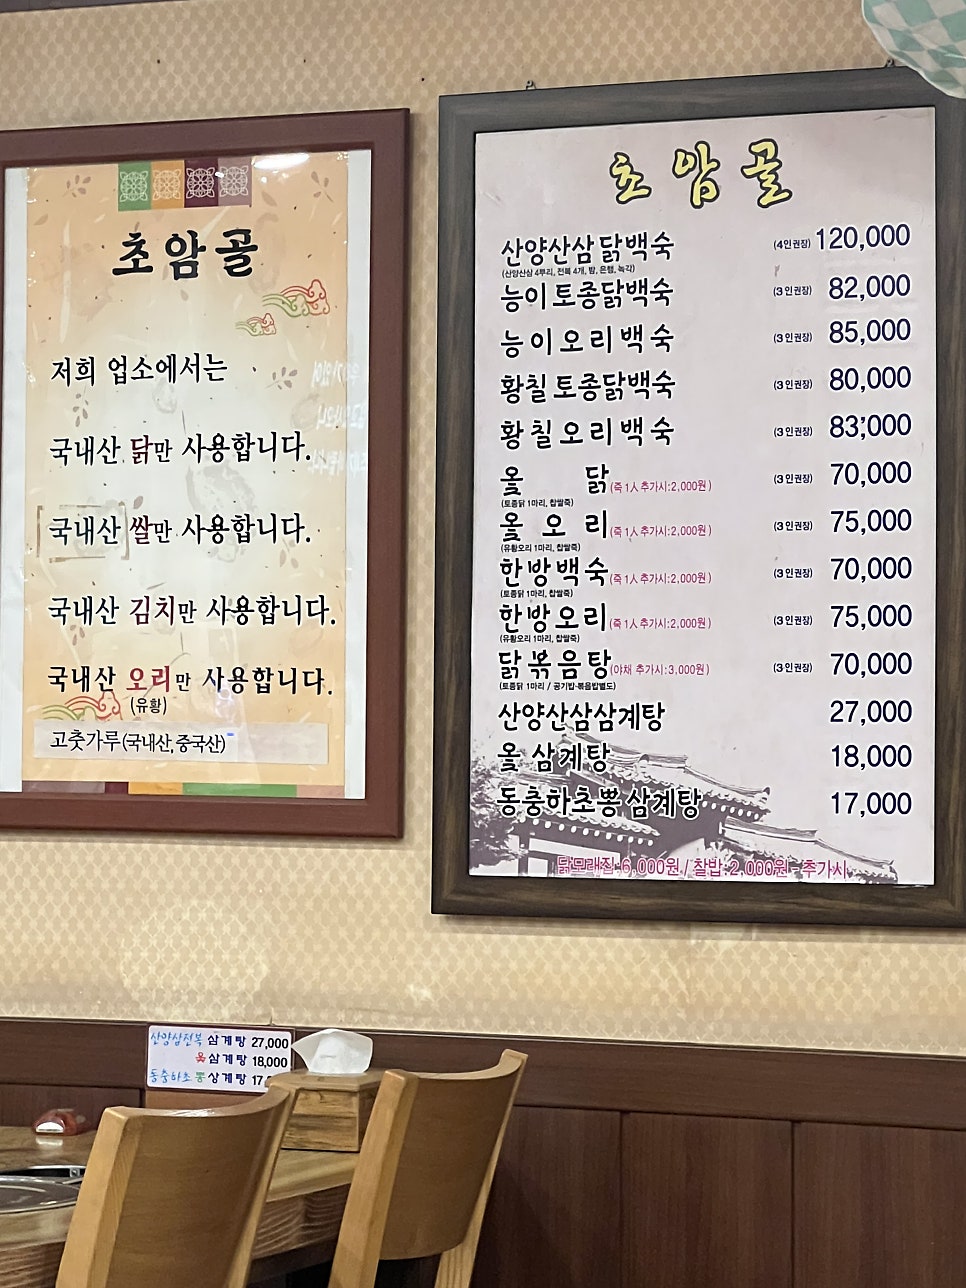 초암골
저희 업소에서는
국내산 닭만 사용합니다.
국내산 쌀만 사용합니다.
국내산 김치만 사용합니다.
국내산 오리만 사용합니다.
(유황)
고춧가루(국내산,중국산)
초암골
산양산삼닭백숙 (4인권장) 120,000
(산양산삼 4뿌리, 전복 4개, 밤, 은행, 녹각)
능이토종닭백숙 (3인권장) 82,000
능이오리백숙 (3인권장) 85,000
황칠토종닭백숙 (3인권장) 80,000
황칠오리백숙 (3인권장) 83,000
옻 닭 (죽 1人 추가시:2,000원) (3인권장) 70,000
(토종닭 1마리, 찹쌀죽)
옻오리 (죽 1人 추가시:2,000원) (3인권장) 75,000
(유황오리 1마리, 찹쌀죽)
한방백숙 (죽 1人 추가시:2,000원) (3인권장) 70,000
(토종닭 1마리, 찹쌀죽)
한방오리 (죽 1人 추가시:2,000원) (3인권장) 75,000
(유황오리 1마리, 찹쌀죽)
닭볶음탕 (야채 추가시:3,000원) (3인권장) 70,000
(토종닭 1마리 / 공기밥·볶음밥별도)
산양산삼삼계탕 27,000
옻 삼계탕 18,000
동충하초뽕 삼계탕 17,000
닭모래집:6,000원 / 찰밥:2,000원 - 추가시
산양삼전복 삼계탕 27,000
옻삼계탕 18,000
동충하초뽕 삼계탕 17,